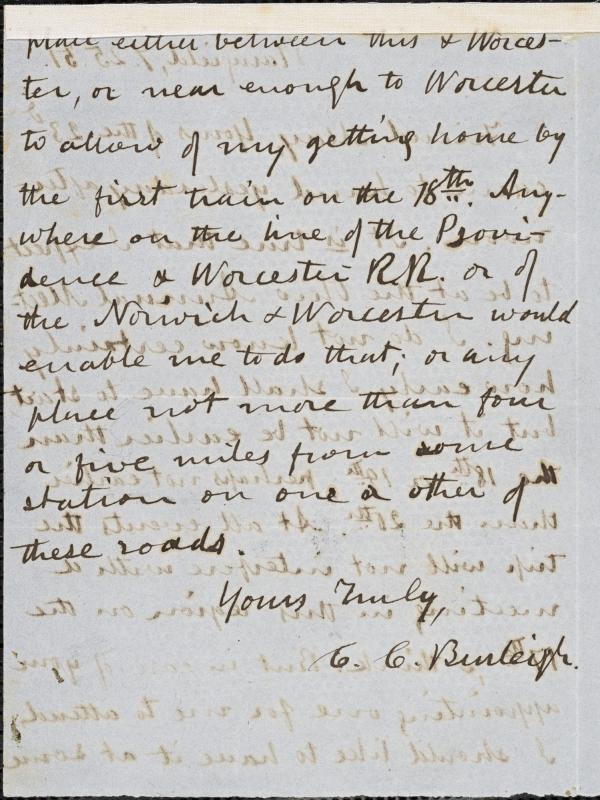 place either between this & Worces-
ter, or near enough to Worcester
to allow of my getting home by
the first train on the 18th. Any-
where on the line of the Provi-
dence & Worcester R.R. or of
the Norwich & Worcester would
enable me to do that; or any
place not more than four
or five miles from some
station on one or other of
these roads.
Yours Truly,
C. C. Burleigh.